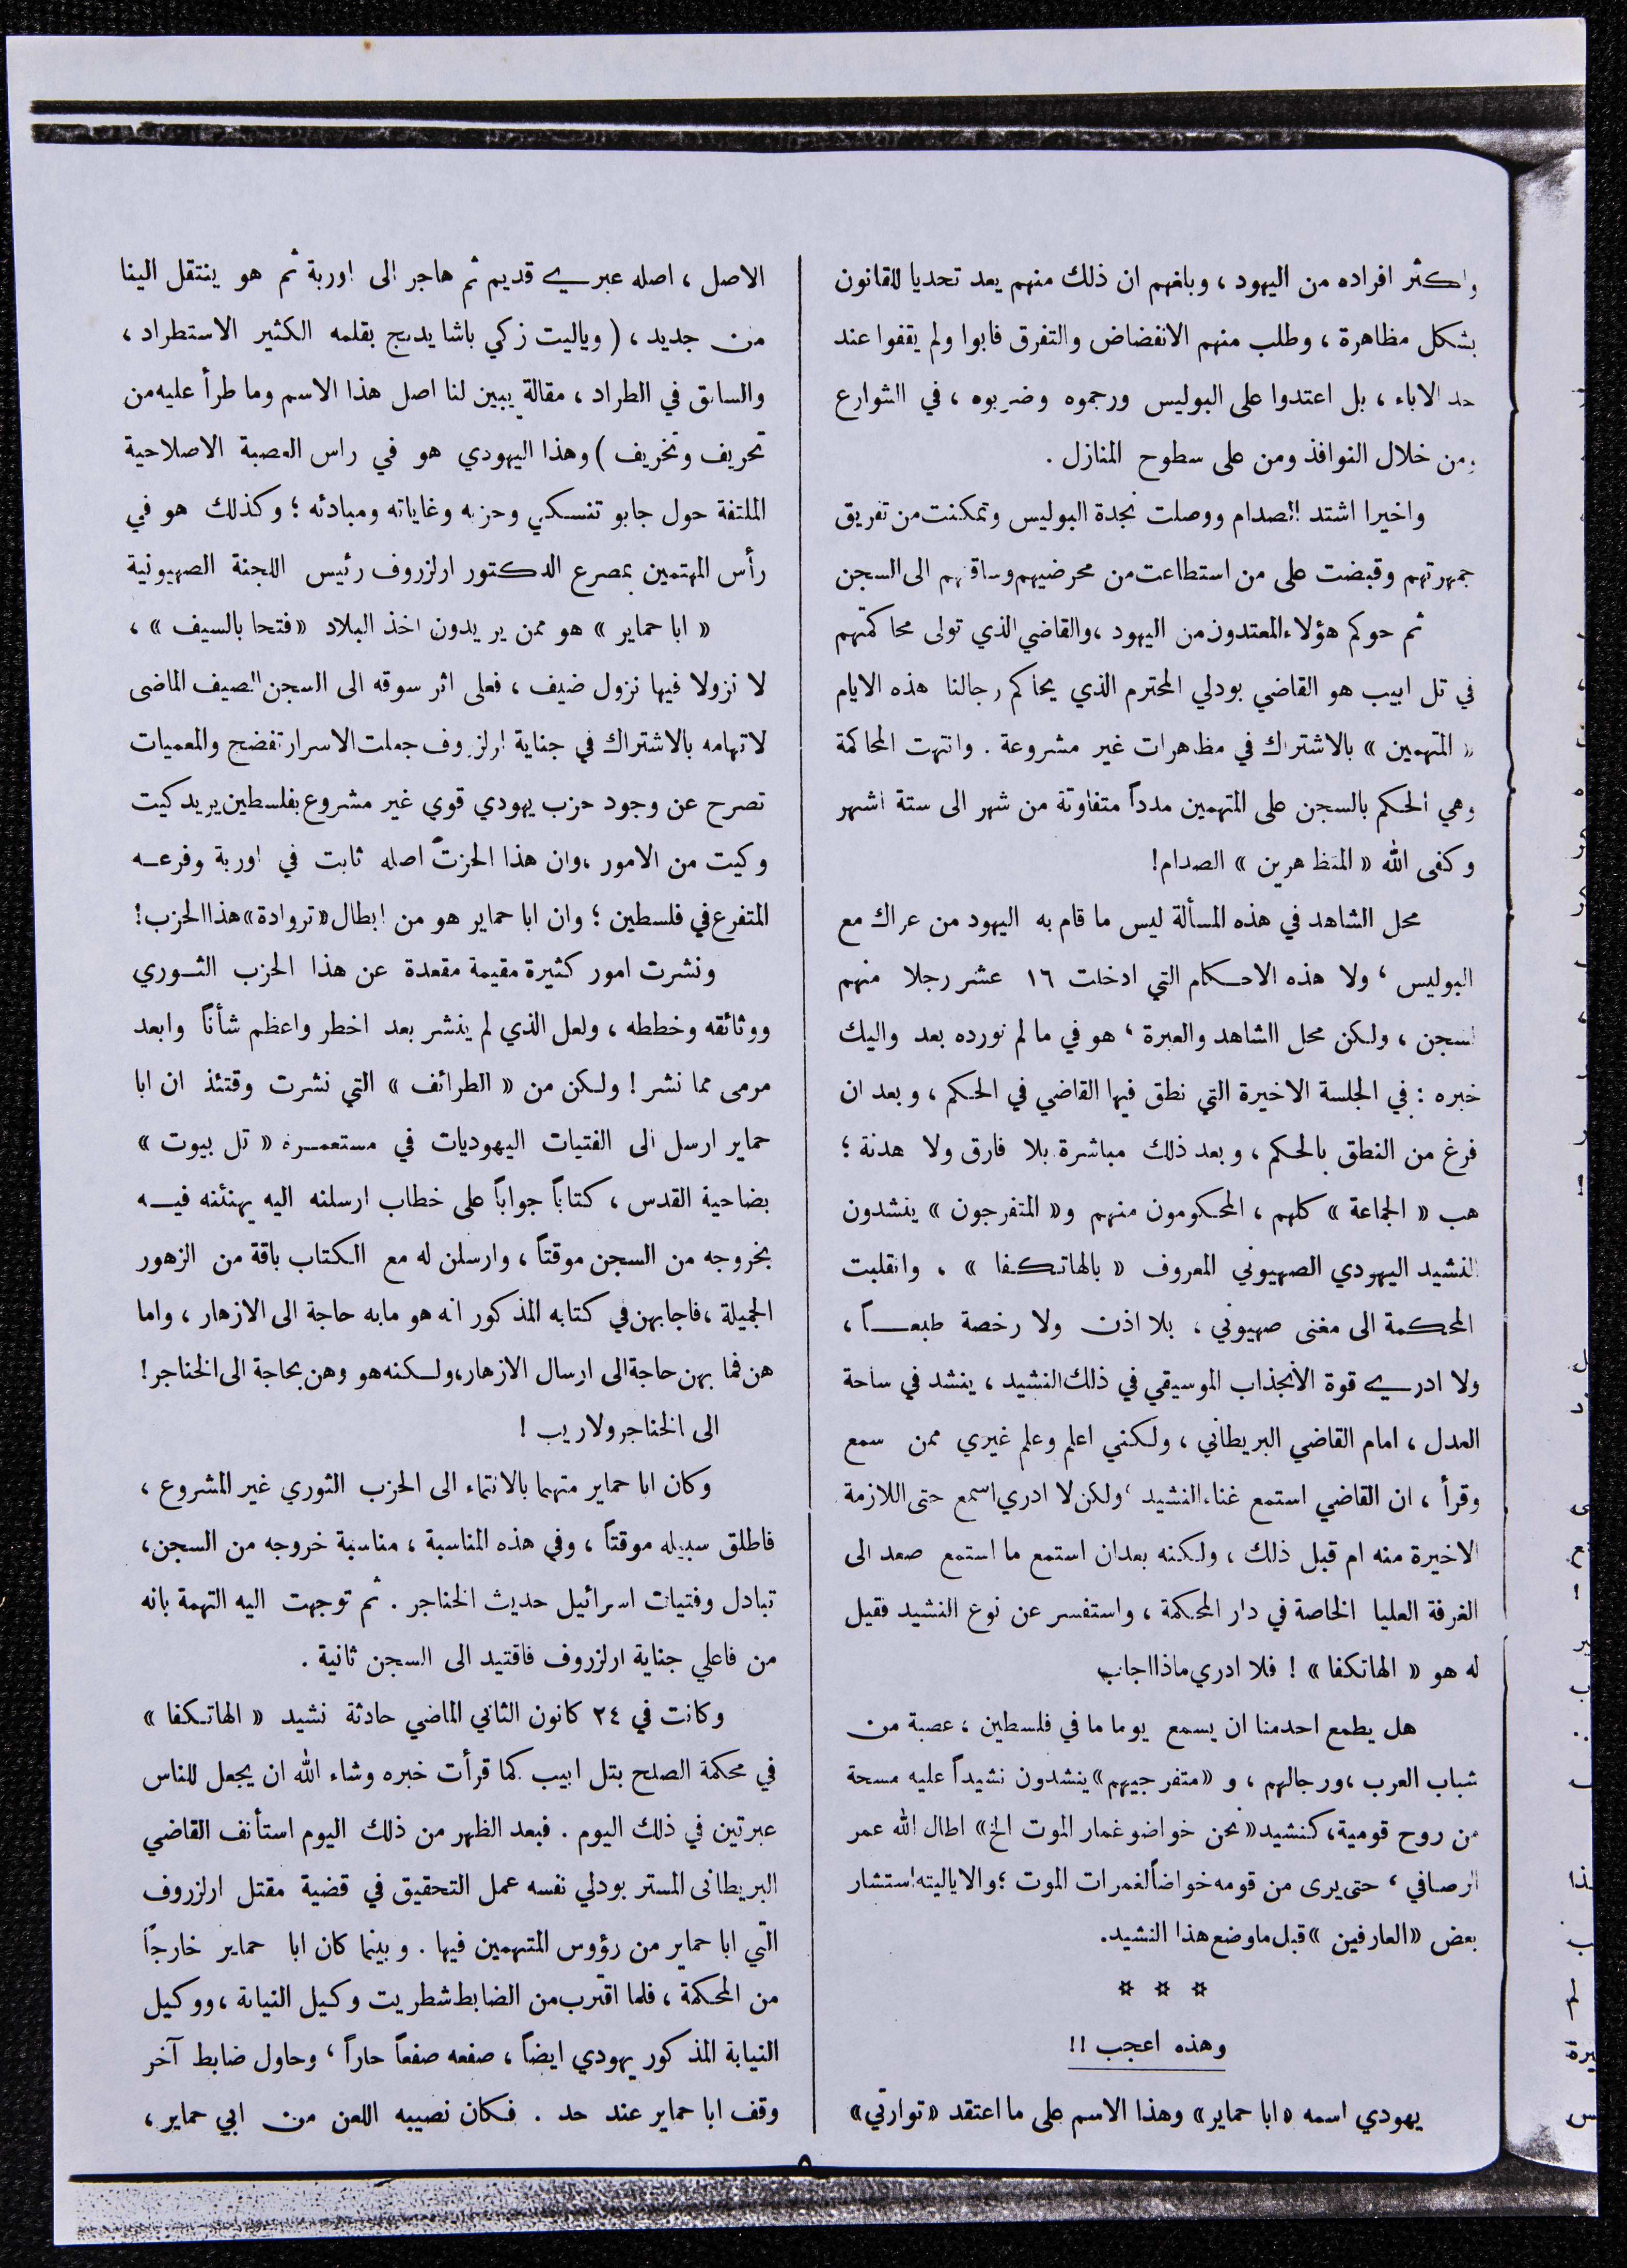 واكثر افراده من اليهود ، وبلغهم ان ذلك منهم يعد تحديا للقانون
بشكل مظاهرة ، وطلب منهم الانفضاض والتفرق فابوا ولم يقفوا عند
حد الاباء ، بل اعتدوا على البوليس ورجموه وضربوه ، في الشوارع
ومن خلال النوافذ ومن على سطوح المنازل .
واخيرا اشتد الصدام ووصلت نجدة البوليس وتمكنت من تفريق
جمهرتهم وقبضت على من استطاعت من محرضيهم وساقتهم الى السجن
ثم حوكم هؤلاء المعتدون من اليهود ، والقاضي الذي تولى محاكمتهم
في تل ابيب هو القاضي بودلي المحترم الذي يحاكم رجالنا هذه الايام
« المتهمين » بالاشتراك في مظاهرات غير مشروعة . وانتهت المحاكمة
وهي الحكم بالسجن على المتهمين مدداً متفاوتة من شهر الى ستة اشهر
وكفى الله « المتظاهرين » الصدام!
محل الشاهد في هذه المسألة ليس ما قام به اليهود من عراك مع
البوليس ، ولا هذه الاحكام التي ادخلت ١٦ عشر رجلا منهم
السجن ، ولكن محل الشاهد والعبرة ، هو في ما لم نورده بعد واليك
خبره : في الجلسة الاخيرة التي نطق فيها القاضي في الحكم ، وبعد ان
فرغ من النطق بالحكم ، وبعد ذلك مباشرة بلا فارق ولا هدنة ؛
هب « الجماعة » كلهم ، المحكومون منهم و« المتفرجون » ينشدون
النشيد اليهودي الصهيوني المعروف « بالهاتكفا » ، وانقلبت
المحكمة الى مغنى صهيوني ، بلا اذن ولا رخصة طبعاً ،
ولا ادري قوة الانجذاب الموسيقي في ذلك النشيد ، ينشد في ساحة
العدل ، امام القاضي البريطاني ، ولكني اعلم وعلم غيري ممن سمع
وقرأ ، ان القاضي استمع غناء النشيد ، ولكن لا ادري اسمع حتى اللازمة
الاخيرة منه ام قبل ذلك ، ولكنه بعدان استمع ما استمع صعد الى
الغرفة العليا الخاصة في دار المحكمة ، واستفسر عن نوع النشيد فقيل
له هو « الهاتكفا » ! فلا ادري ماذا اجاب
هل يطمع احدمنا ان يسمع يوما ما في فلسطين ، عصبة من
شباب العرب ، ورجالهم ، و « متفرجيهم » ينشدون نشيداً عليه مسحة
من روح قومية، كنشيد « نحن خواضو غمار الموت الخ » اطال الله عمر
الرصافي ، حتى يرى من قومه خواضاً لغمرات الموت ؛ والا ياليته استشار
بعض « العارفين » قبل ما وضع هذا النشيد.
☆ ☆ ☆
وهذه اعجب !!
يهودي اسمه « ابا حماير » وهذا الاسم على ما اعتقد « توارتي »
الاصل ، اصله عبري قديم ثم هاجر الى اوربة ثم هو ينتقل الينا
من جديد ، ( وياليت زكي باشا يدبج بقلمه الكثير الاستطراد ،
والسابق في الطراد ، مقالة يبين لنا اصل هذا الاسم وما طرأ عليه من
تحريف وتخريف ) وهذا اليهودي هو في راس العصبة الاصلاحية
الملتفة حول جابو تنسكي وحزبه وغاياته ومبادئه ؛ وكذلك هو في
رأس المهتمين بمصرع الدكتور ارلزروف رئيس اللجنة الصهيونية
« ابا حماير » هو ممن يريدون اخذ البلاد « فتحا بالسيف » ،
لا نزولا فيها نزول ضيف ، فعلى اثر سوقه الى السجن الصيف الماضى
لاتهامه بالاشتراك في جناية ارلزروف جعلت الاسرار تفضح والمعميات
تصرح عن وجود حزب يهودي قوي غير مشروع بفلسطين يريد كيت
وكيت من الامور ، وان هذا الحزب اصله ثابت في اوربة وفرعه
المتفرع في فلسطين ؛ وان ابا حماير هو من ابطال « تروادة » هذا الحزب !
ونشرت امور كثيرة مقيمة مقعدة عن هذا الحزب الثوري
ووثائقه وخططه ، ولعل الذي لم ينشر بعد اخطر واعظم شأناً وابعد
مرمى مما نشر ! ولكن من « الطرائف » التي نشرت وقتئذ ان ابا
حماير ارسل الى الفتيات اليهوديات في مستعمرة « تل بيوت »
بضاحية القدس ، كتاباً جواباً على خطاب ارسلنه اليه يهنئنه فيه
بخروجه من السجن موقتاً ، وارسلن له مع الكتاب باقة من الزهور
الجميلة ، فاجابهن في كتابه المذكور انه هو مابه حاجة الى الازهار ، واما
هن فما بهن حاجة الى ارسال الازهار، ولكنه هو وهن بحاجة الى الخناجر !
الى الخناجر ولا ريب !
وكان ابا حماير متهما بالانتماء الى الحزب الثوري غير المشروع ،
فاطلق سبيله موقتاً ، وفي هذه المناسبة ، مناسبة خروجه من السجن ،
تبادل وفتيات اسرائيل حديث الخناجر . ثم توجهت اليه التهمة بانه
من فاعلي جناية ارلزروف فاقتيد الى السجن ثانية .
وكانت في ٢٤ كانون الثاني الماضي حادثة نشيد « الهاتكفا »
في محكمة الصلح بتل ابيب كما قرأت خبره وشاء الله ان يجعل للناس
عبرتين في ذلك اليوم . فبعد الظهر من ذلك اليوم استأنف القاضي
البريطانى المستر بودلي نفسه عمل التحقيق في قضية مقتل ارلزروف
التي ابا حماير من رؤوس المتهمين فيها . وبينما كان ابا حماير خارجاً
من المحكمة ، فلما اقترب من الضابط شطريت وكيل النيابة ، ووكيل
النيابة المذكور يهودي ايضاً ، صفعه صفعاً حاراً ، وحاول ضابط آخر
وقف ابا حماير عند حد . فكان نصيبه اللعن من ابي حماير ،